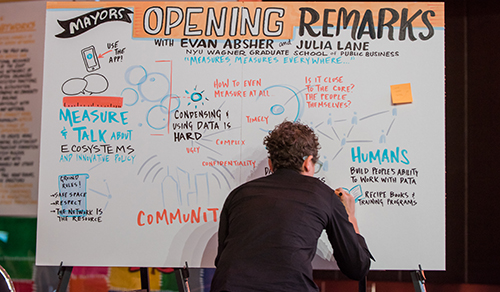 MAYORS
OPENING REMARKS
WITH EVAN ABSHER and JULIA LANE
NYU WAGNER GRADUATE SCHOOL of PUBLIC BUSINESS
"MEASURES MEASURES EVERYWHERE..."
USE THE
APP!
MEASURE
& TALK ABOUT
ECOSYSTEMS
AND INNOVATIVE POLICY
CROWD
RULES!
→ SAFE SPACE
→ RESPECT
→ THE NETWORK IS
THE RESOURCE
CONDENSING &
USING DATA IS
HARD
UGLY
COMPLEX
CONFIDENTIALITY
HOW TO EVEN
MEASURE AT ALL
IS IT CLOSE
TO THE CORE?
THE PEOPLE
THEMSELVES?
COMMUNIT
HUMANS
BUILD PEOPLE'S ABILITY
TO WORK WITH DATA
RECIPE BOOKS &
TRAINING PROGRAMS